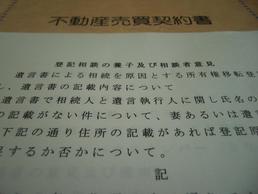 不動産売買契約書
登記相談の養子及び相談者意見
遺言書による相続を原因とする所有権移転登
し、遺言書の記載内容について
遺言書で相続人と遺言執行人に関し氏名の
の記載がない件について、妻あるいは遺
下記の通り住所の記載があれば登記原
足するか否かについて。
記